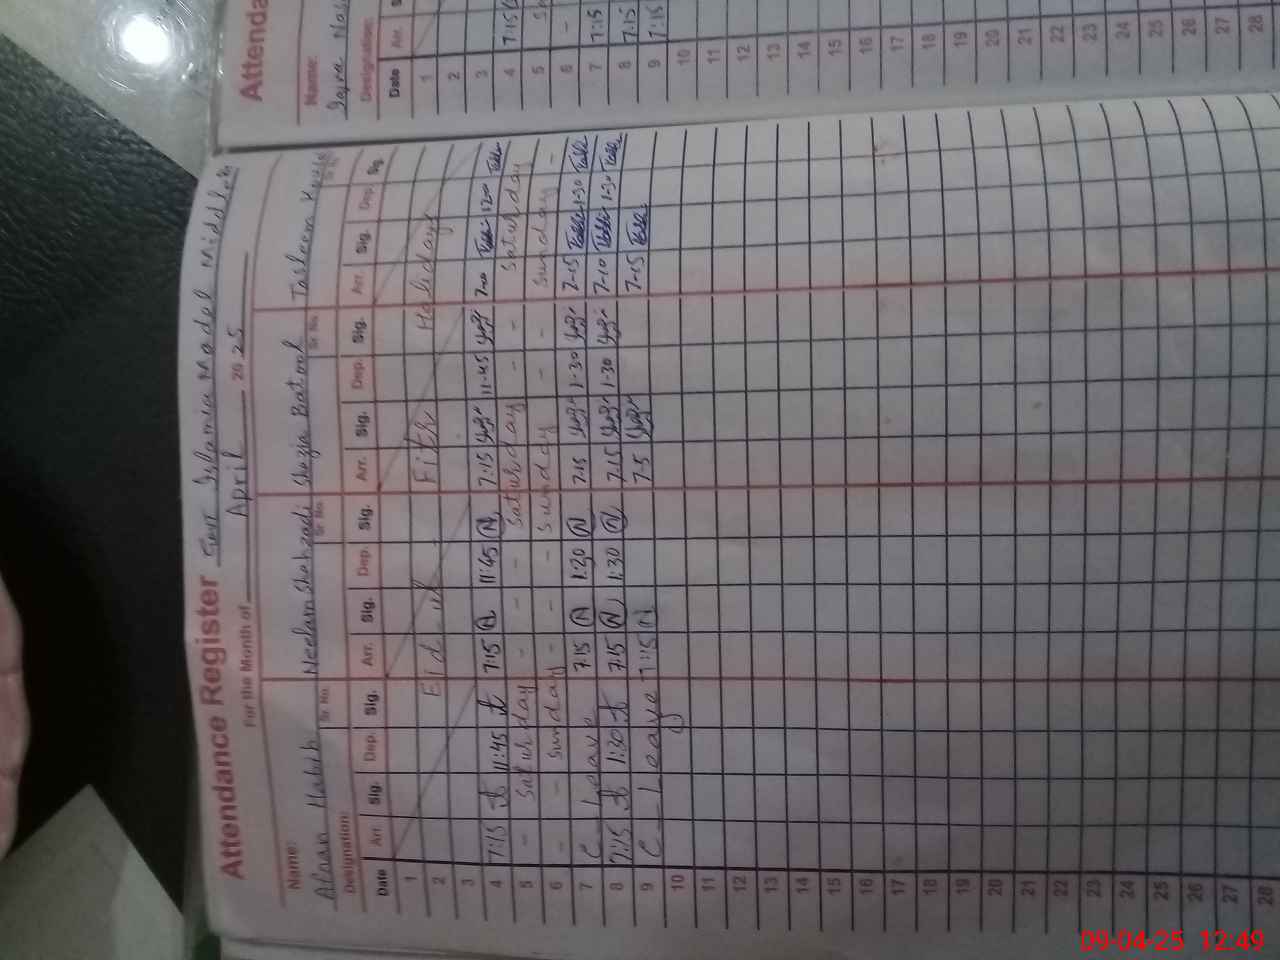 Attendance Register Govt Islamia Model Middle
For the Month of April 20 25
Name: Sr. No. Sr. No. Sr. No.
Habib Neelam Shahzadi Shazia Batool Tasleem
Designation:
Date Arr. Sig. Dep. Sig. Arr. Sig. Dep. Sig. Arr. Sig. Dep. Sig. Arr. Sig. Dep. Sig.
1
2 Eid ul Fitr Holidays
3
4 7:15 11:45 7:15 N 11:45 N 7:15 11-45 7-10 12-00
5 - Saturday - - - Saturday - - - Saturday
6 - - Sunday - - - Sunday - - - Sunday -
7 C - Leave 7:15 N 1:30 N 7:15 1-30 7-15 1-30
8 7:15 1:30 7:15 N 1:30 N 7:15 1-30 7-10 1-30
9 C - Leave 7:15 N 7-5 7-15
10
11
12
13
14
15
16
17
18
19
20
21
22
23
24
25
26
27
28
Attenda
Name:
Designation:
Date Arr.
1
2
3
4 7:15
5
6 -
7 7:15
8 7:15
9 7:15
10
11
12
13
14
15
16
17
18
19
20
21
22
23
24
25
26
27
28
09-04-25 12:49